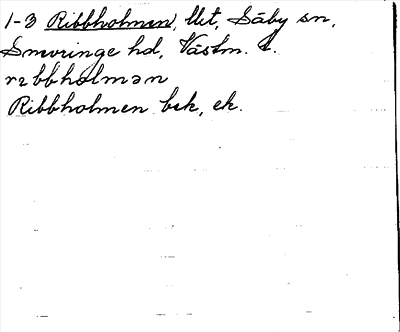 1-3 Ribbholmen, lht, Säby sn,
Snevringe hd, Västm. l.
ribbhɔlmən
Ribbholmen bek, ek.